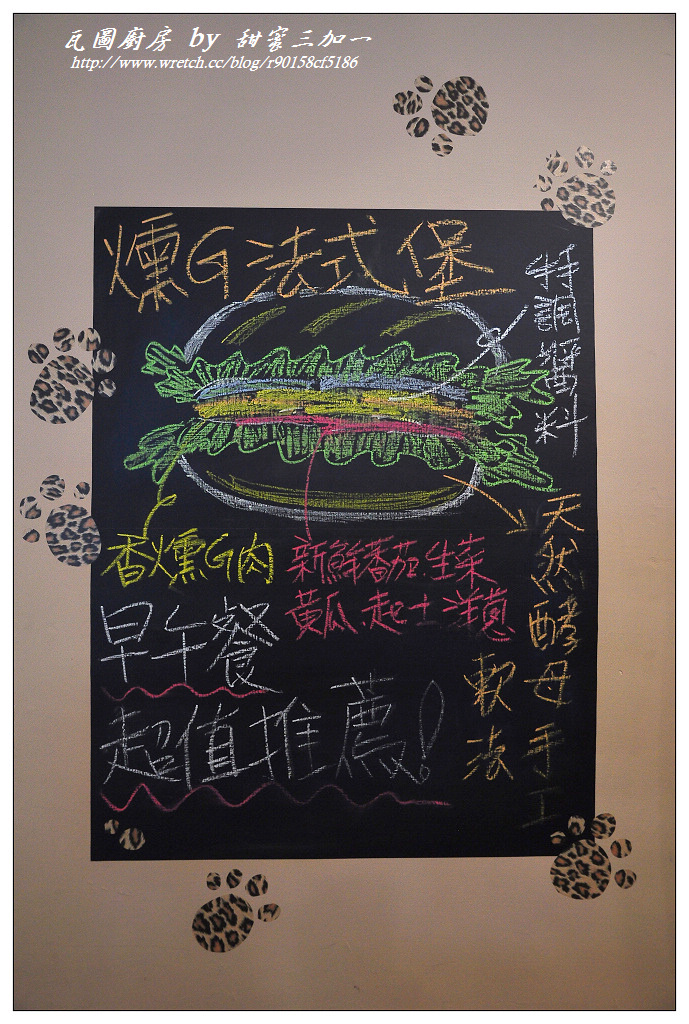 瓦圖廚房 by 甜蜜三加一
http://www.wretch.cc/blog/r90158cf5186
燻G法式堡
特調醬料
香燻G肉
新鮮番茄.生菜
黃瓜.起士洋蔥
天然酵母手工
軟法
早午餐
超值推薦!